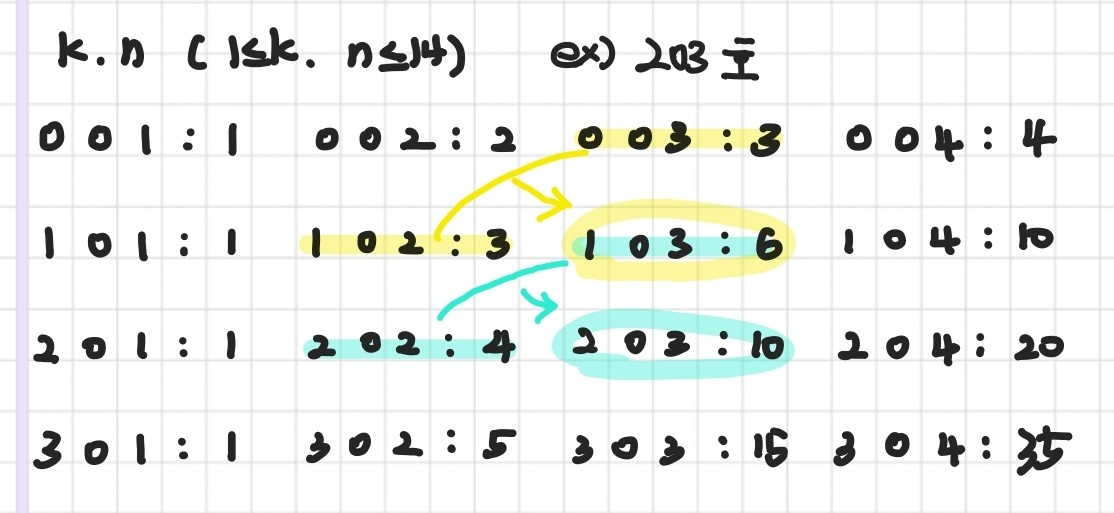 k.n (1≤k. n≤14) ex) 203호
001:1 002:2 003:3 004:4
101:1 102:3 103:6 104:10
201:1 202:4 203:10 204:20
301:1 302:5 303:15 304:35